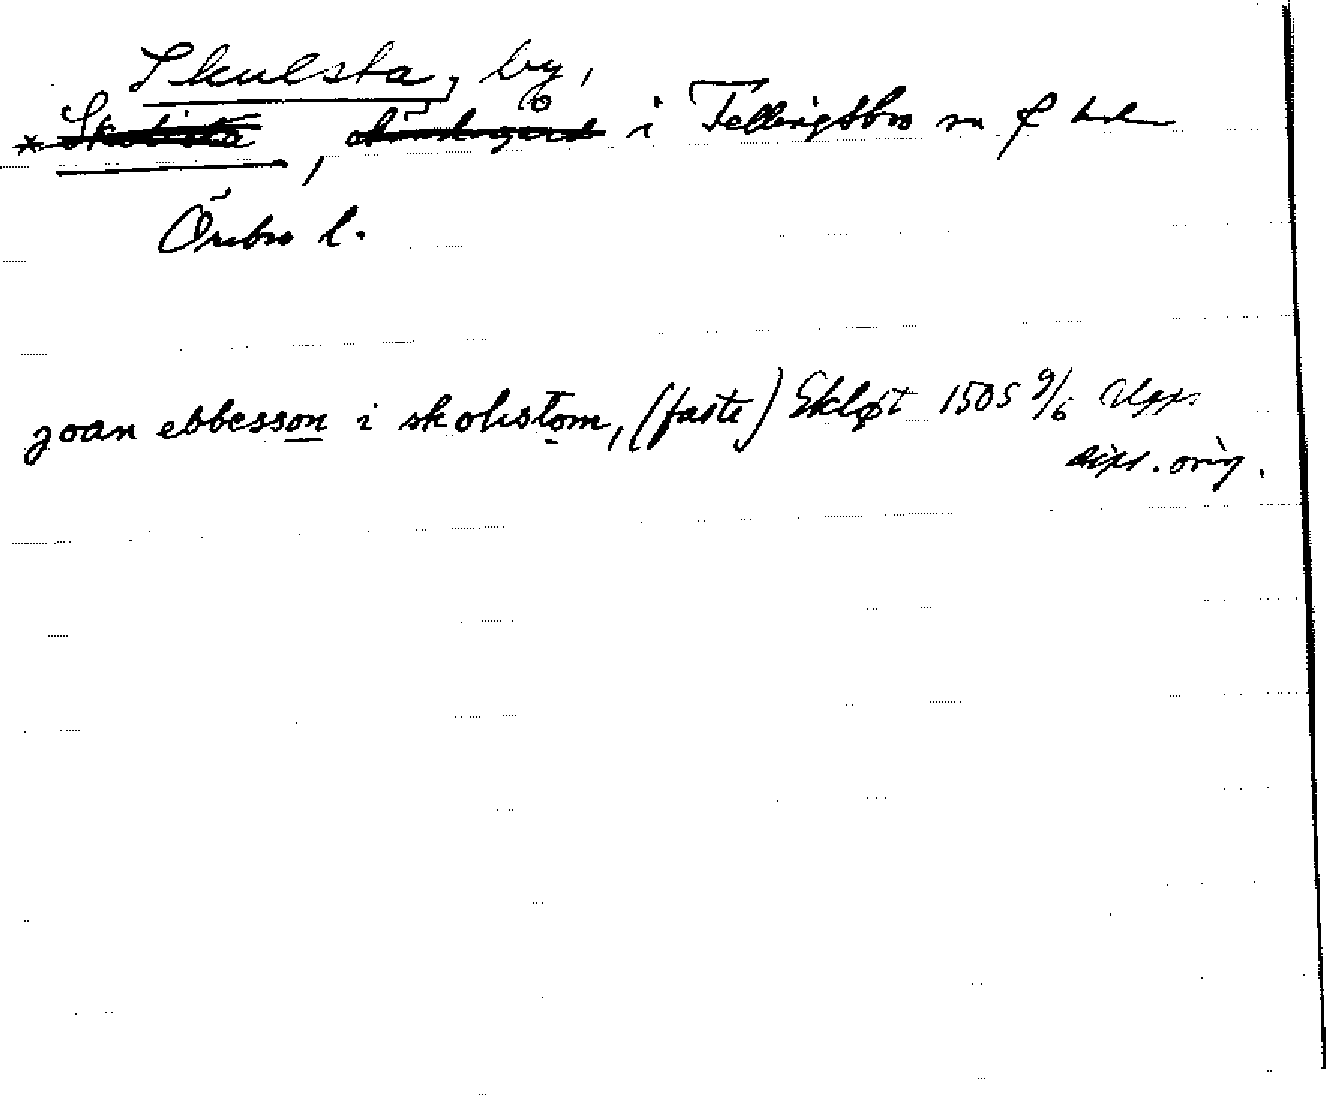 Skulsta, by,
* Skolista, i Fellingsbro sn o hd
Örebro l.
joan ebbesson i skolistom, (faste) Eklöst 1505 9/6 Upps
dipl. orig.